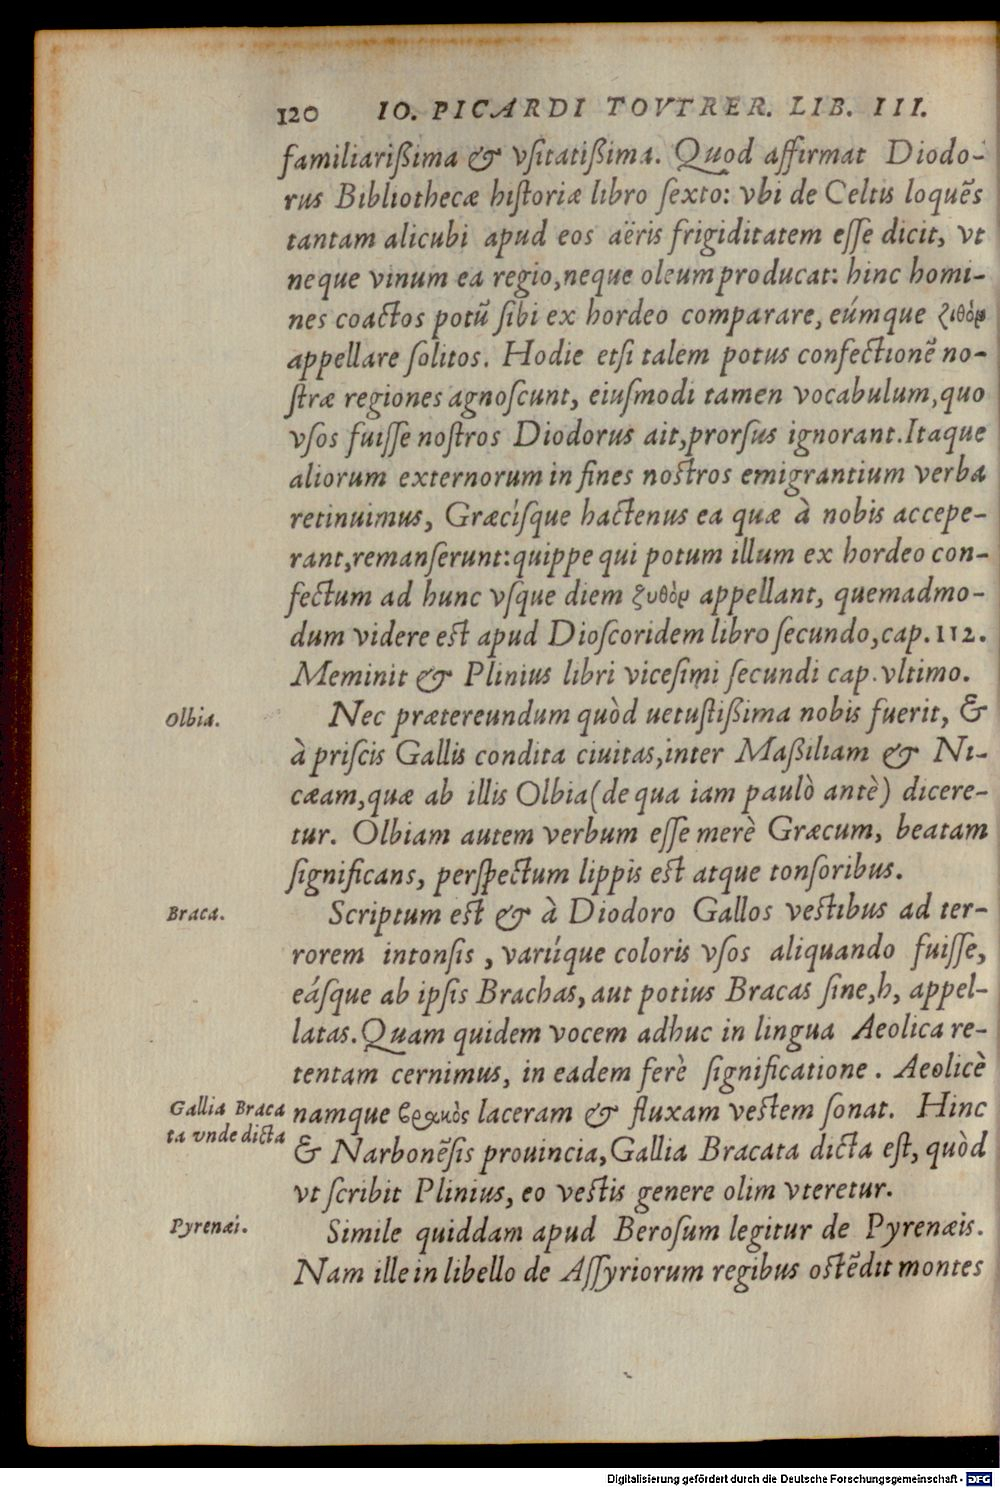 120 IO. PICARDI TOVTRER. LIB. III.
familiarißima & vſitatißima. Quod affirmat Diodo-
rus Bibliothecæ hiſtoriæ libro ſexto: vbi de Celtis loquẽs
tantam alicubi apud eos aëris frigiditatem eſſe dicit, vt
neque vinum ea regio, neque oleum producat: hinc homi-
nes coactos potũ ſibi ex hordeo comparare, eúmque ζιθὸν
appellare ſolitos. Hodie etſi talem potus confectionẽ no-
ſtræ regiones agnoſcunt, eiuſmodi tamen vocabulum, quo
vſos fuiſſe noſtros Diodorus ait, prorſus ignorant. Itaque
aliorum externorum in fines noſtros emigrantium verba
retinuimus, Græcíſque hactenus ea quæ à nobis accepe-
rant, remanſerunt: quippe qui potum illum ex hordeo con-
fectum ad hunc vſque diem ζυθὸν appellant, quemadmo-
dum videre eſt apud Dioſcoridem libro ſecundo, cap. 112.
Meminit & Plinius libri viceſimi ſecundi cap. vltimo.
Olbia.
Nec prætereundum quòd uetuſtißima nobis fuerit, &
à priſcis Gallis condita ciuitas, inter Maßiliam & Ni-
cæam, quæ ab illis Olbia (de qua iam paulò antè) dicere-
tur. Olbiam autem verbum eſſe merè Græcum, beatam
ſignificans, perſpectum lippis eſt atque tonſoribus.
Braca.
Scriptum eſt & à Diodoro Gallos veſtibus ad ter-
rorem intonſis, variíque coloris vſos aliquando fuiſſe,
eáſque ab ipſis Brachas, aut potius Bracas ſine, h, appel-
latas. Quam quidem vocem adhuc in lingua Aeolica re-
tentam cernimus, in eadem ferè ſignificatione. Aeolicè
Gallia Braca
ta vnde dicta
namque βρακὸς laceram & fluxam veſtem ſonat. Hinc
& Narbonẽſis prouincia, Gallia Bracata dicta eſt, quòd
vt ſcribit Plinius, eo veſtis genere olim vteretur.
Pyrenæi.
Simile quiddam apud Beroſum legitur de Pyrenæis.
Nam ille in libello de Aſſyriorum regibus oſtẽdit montes
Digitalisierung gefördert durch die Deutsche Forschungsgemeinschaft - DFG